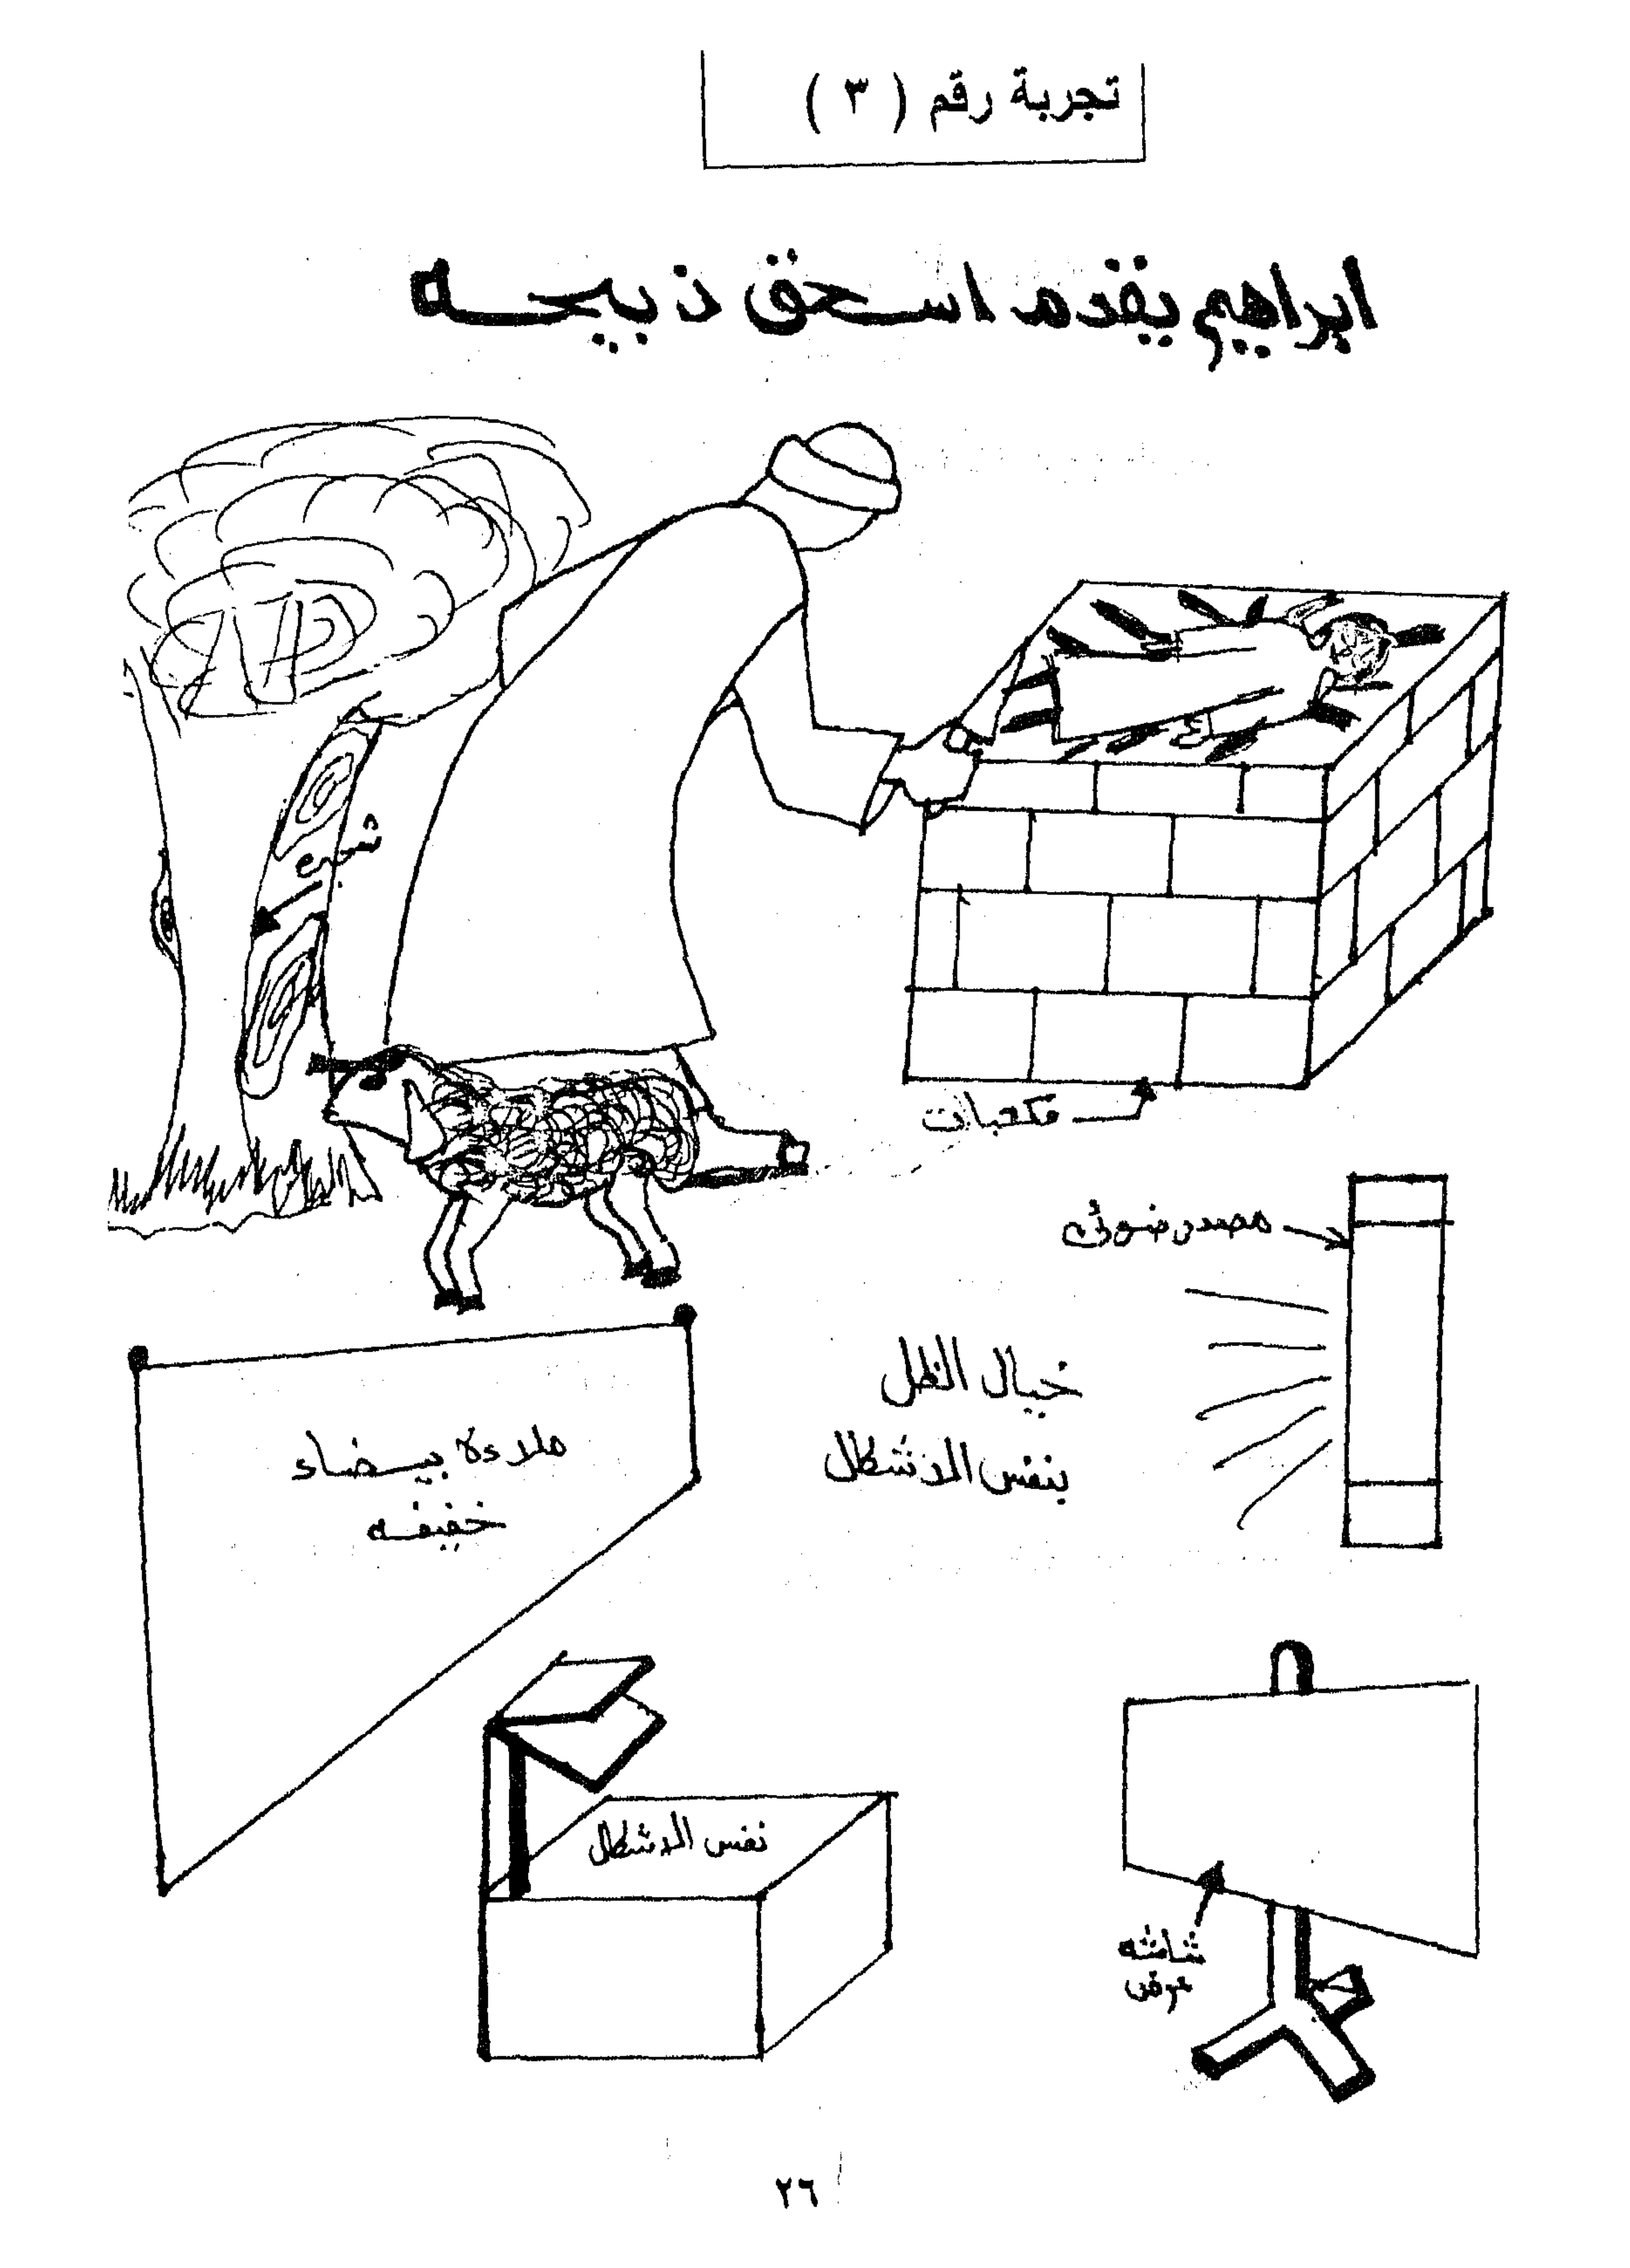 تجربة رقم ( ٣ )
ابراهيم يقدم اسحق ذبيحه
شجره
مكعبات
مصدر ضوئى
خيال الظل
بنفس الاشكال
ملاءة بيضاء
خفيفه
نفس الاشكال
شاشه
عرض
٢٦